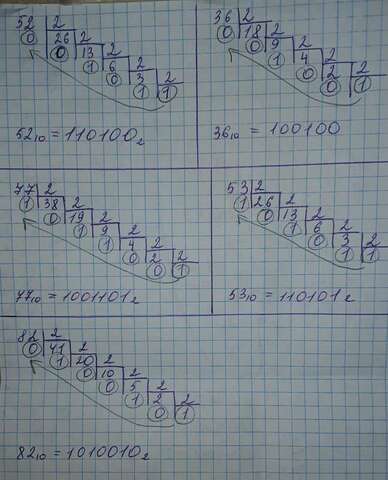 52 2
0 26 2
0 13 2
1 6 2
0 3 2
1 1
52₁₀ = 110100₂
36 2
0 18 2
0 9 2
1 4 2
0 2 2
0 1
36₁₀ = 100100
77 2
1 38 2
0 19 2
1 9 2
1 4 2
0 2 2
0 1
77₁₀ = 1001101₂
53 2
1 26 2
0 13 2
1 6 2
0 3 2
1 1
53₁₀ = 110101₂
82 2
0 41 2
1 20 2
0 10 2
0 5 2
1 2 2
0 1
82₁₀ = 1010010₂